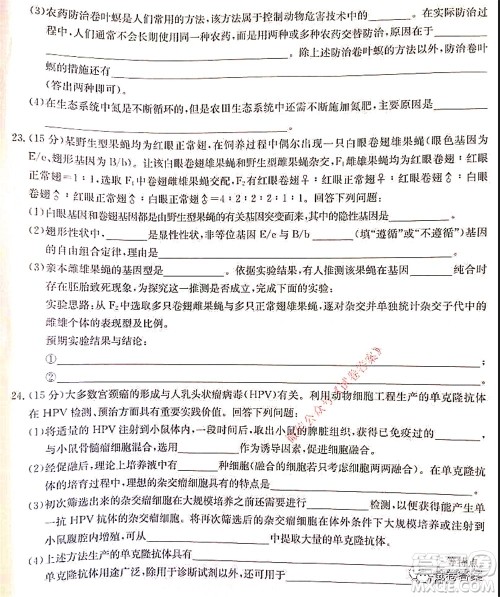 (3)农药防治卷叶螟是人们常用的方法，该方法属于控制动物危害技术中的________。在实际防治过
程中，人们常常将两种或多种农药混合或交替使用，用两种或多种农药交替防治，防治效果更好的
原因是________。除上述防治卷叶螟的方法以外，防治卷叶
螟的措施还有________
(答出两种即可)。
(4)在生态系统中氮是不断循环的，但是农田生态系统中还要不断施加氮肥，原因是________
23.(15分)某野生型果蝇均为红眼正常翅，在饲养过程中偶尔出现一只白眼卷翅雄果蝇(眼色基因为
E/e,翅形基因为B/b)。让该白眼卷翅雄果蝇和野生型雌果蝇杂交，F₁雌雄果蝇均为红眼卷翅：红眼
正常翅=1∶1，选取F₁中卷翅雌雄果蝇交配，F₂ 红眼卷翅♀∶红眼正常翅♀∶红眼卷翅♂∶白眼卷翅
♂∶红眼正常翅♂∶白眼正常翅♂=4∶2∶2∶2∶1∶1。回答下列问题：
(1)白眼基因和卷翅基因都是由野生型果蝇的基因通过________产生的。
(2)翅形性状中，________是显性性状，非等位基因E/e与B/b________(填“遵循”或“不遵循”)基因
的自由组合定律，理由是________
(3)亲本雄雌果蝇的基因型是________。依据实验结果，有人推测该果蝇在基因________纯合时
存在胚胎致死现象，为进一步证明该推测是否正确，完善下面的实验：
实验思路：从F₂中选取多只卷翅雌果蝇与多只正常翅雄果蝇，逐对杂交并单独统计杂交子代中的
雌雄个体的表现型及比例。
预期实验结果与结论：
①________
②________
24.(15分)大多数宫颈癌的形成与人乳头状瘤病毒(HPV)有关。利用动物细胞工程生产的单克隆抗体
在HPV检测、预治方面具有重要的实践意义和应用价值。回答下列问题：
(1)将适量的HPV注射到小鼠体内，一段时间后，从小鼠的脾脏组织中，获取已经免疫过的________，
与小鼠骨髓瘤细胞混合，________作为诱导因素，促进细胞融合。
(2)经促融后，理论上培养液中有________种融合的细胞(融合细胞若只考虑细胞两两融合)。在单克隆抗
体的培育过程中，理想的杂交瘤细胞具有的特点是________
(3)初次筛选出来的杂交瘤细胞在大规模培养之前还需要进行________和________，以获得单
一抗HPV抗体的杂交瘤细胞。将再次筛选的杂交瘤细胞在体外条件下大规模培养或注射到
小鼠腹腔内增殖，可以________
(4)上述方法生产的单克隆抗体具有________等优点。
单克隆抗体用途广泛，除可以用于诊断试剂以外，还可用于________